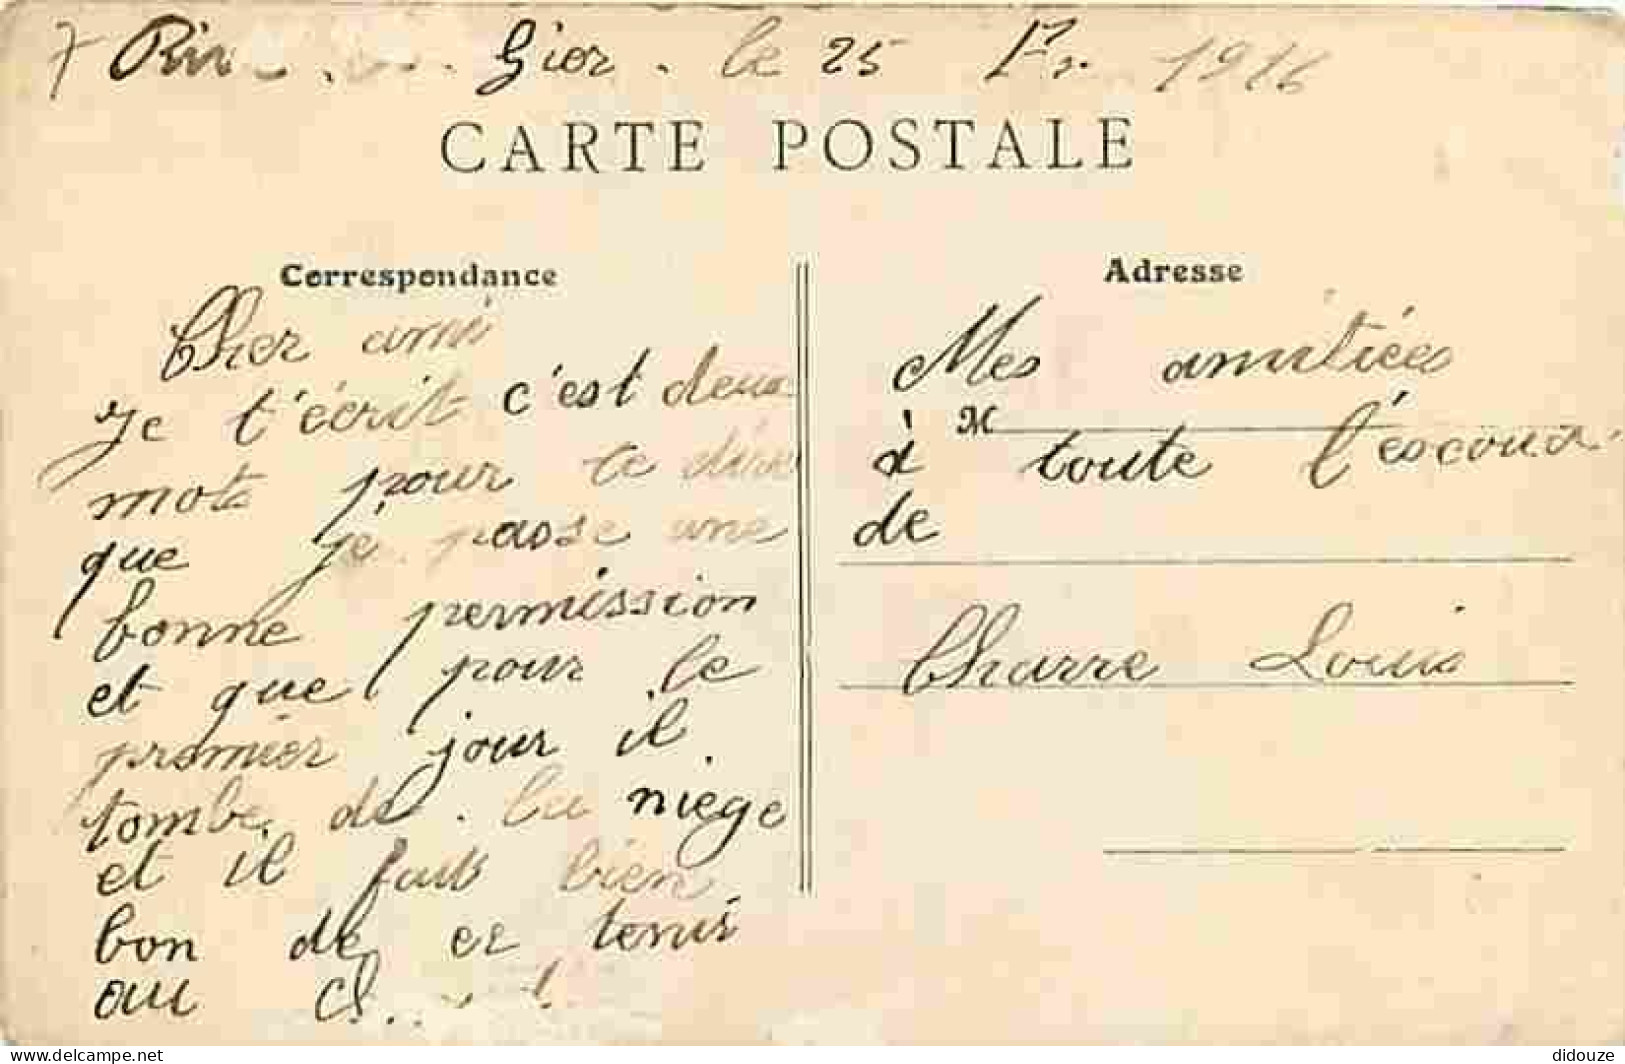 Gior. le 25 1916
CARTE POSTALE
Correspondance
Cher ami
Je t'écrit c'est deux
mots pour te dire
que je passe une
bonne permission
et que pour le
premier jour il
tombe de la niège
et il fait bien
bon de se tenir
au
Adresse
Mes amitiées
à M toute l'escoua
de
Charre Louis
didouze